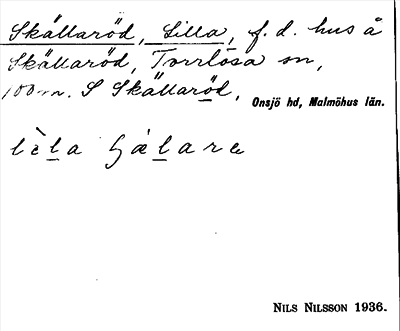 Skällaröd, Lilla, f. d. hus å
Skällaröd, Torrlösa sn,
100 m. S Skällaröd, Onsjö hd, Malmöhus län.
lèla
NILS NILSSON 1936.